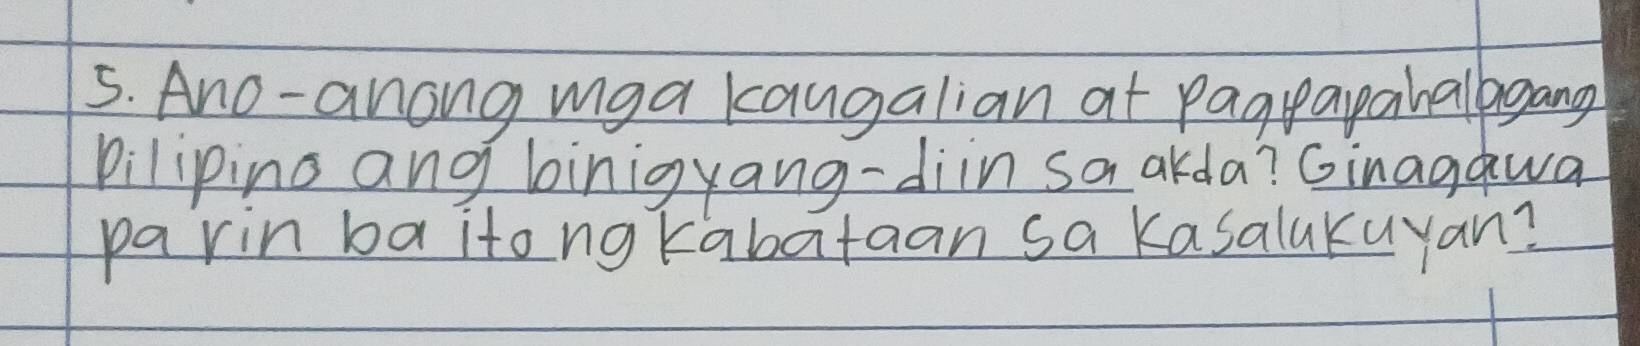 5. Ano-anong mga kaugalian at pagpapahalagang
Pilipino ang binigyang-diin sa akda? Ginagawa
pa rin ba ito ng kabataan sa kasalukuyan?